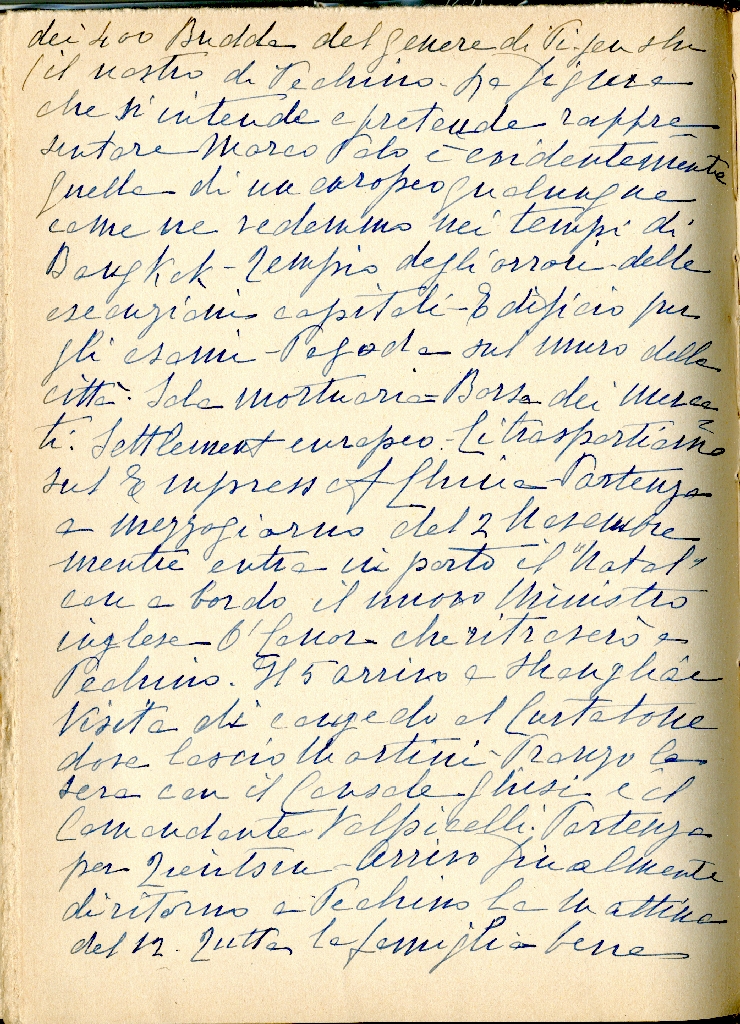 dei 400 Budda del genere di Pi-yun-shu
(il nostro di Pechino. La figura
che s'intende e pretende rappre
sentare Marco Polo è evidentemente
quella di un europeo qualunque
come ne vedemmo nei tempi di
Bangkok - Tempio degli orrori - delle
esecuzioni capitali - Edificio per
gli esami - Pagoda sul muro della
città. Sala mortuaria = Borsa dei merca
ti. Settlement europeo. Ci trasportiamo
sul Empress of China - Partenza
a mezzogiorno del 2 Novembre
mentre entra in porto il "Natal"
con a bordo il nuovo Ministro
inglese O' Conor che ritroverò a
Pechino. Il 5 arrivo a Shanghai
Visita di congedo al Curtatone
dove lascio Martini - Pranzo la
sera con il Console Ghisi e il
Comandante Volpicelli. Partenza
per Tientsin - Arrivo finalmente
di ritorno a Pechino la mattina
del 12. Tutta la famiglia bene